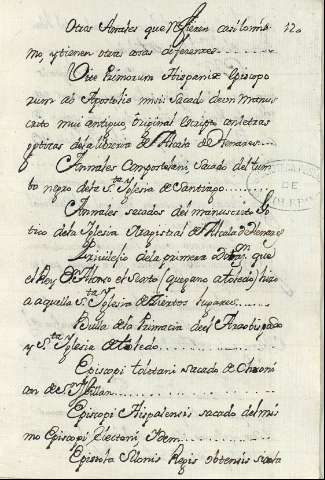 Otros Annales que Refieren casi lo mis
mo, y tienen otras cosas diferentes
120
Vite Primorum Hispaniæ Episcopo
rum ab Apostolis missi Sacado de un Manus
crito mui antiguo, Original escripto en letras
goticas de la libreria de Alcala de Henares
Annales Compostelani, Sacado del tum
bo negro de la S.ta Iglesia de Santiago
Annales sacados del manuscrito Go
tico de la Iglesia Magistral de Alcala de Henares
Privilegio de la primera Dotaz.on que
el Rey D. Alonso el Sexto (que gano a toledo) hizo
a aquella S.ta Iglesia de ciertos lugares
Bulla de la Primacia de el Arzobispado
y S.ta Iglesia de toledo
Episcopi toletani sacado de Chroni
con de S.n Millan
Episcopi Hispalensis sacado del mis
mo Episcopi Idem
Epistola Silonis Regis
DE
TOLEDO